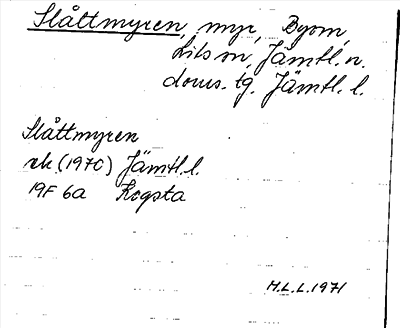 Slåttmyren, myr, Byom,
Lits sn, Jämtl. n.
doms. tg. Jämtl. l.
Slåttmyren
ek (1970) Jämtl. l.
19F 6a Kogsta
H.L.L. 1971